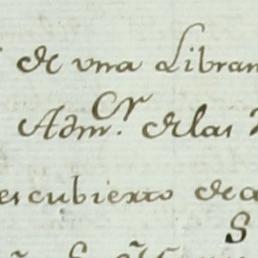 de una Libran
Admor. de las
escubierto de
S